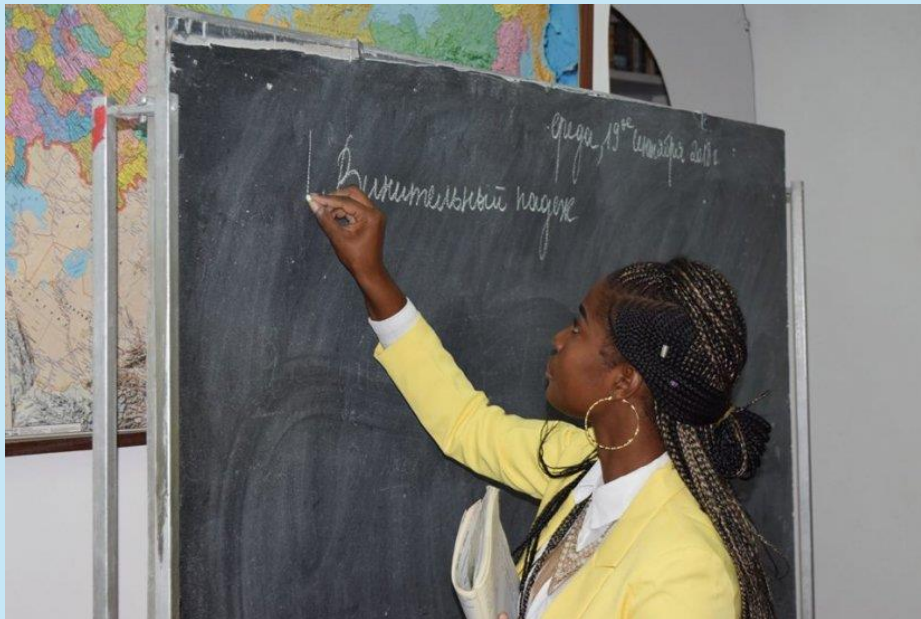 среда, 19ое сентября 2018 г.
Винительный падеж